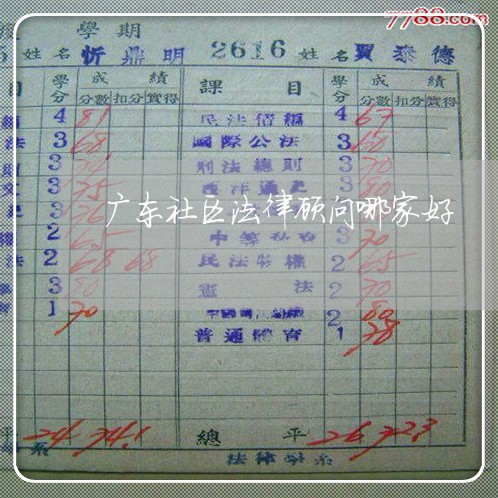 7788.com
學期
姓名 忻鼎明 2616 姓名 賈泰德
目 學分 成績 課目 學分 成績
分數 扣分 實得 分數 扣分 實得
4 81 民法債編 4 67
法 3 68 國際公法 3 60
3 刑法總則 3 70
3 75 西洋通史 3 80
3 76
广东社区法律顾问哪家好
權 2 65 3 70
法 2 68 68 民法物權 2 65
3 80 憲法 2 70
1 70 2 80
普通體育 1 78
平 24 74.1 總平 26 72.3
系 法律學系